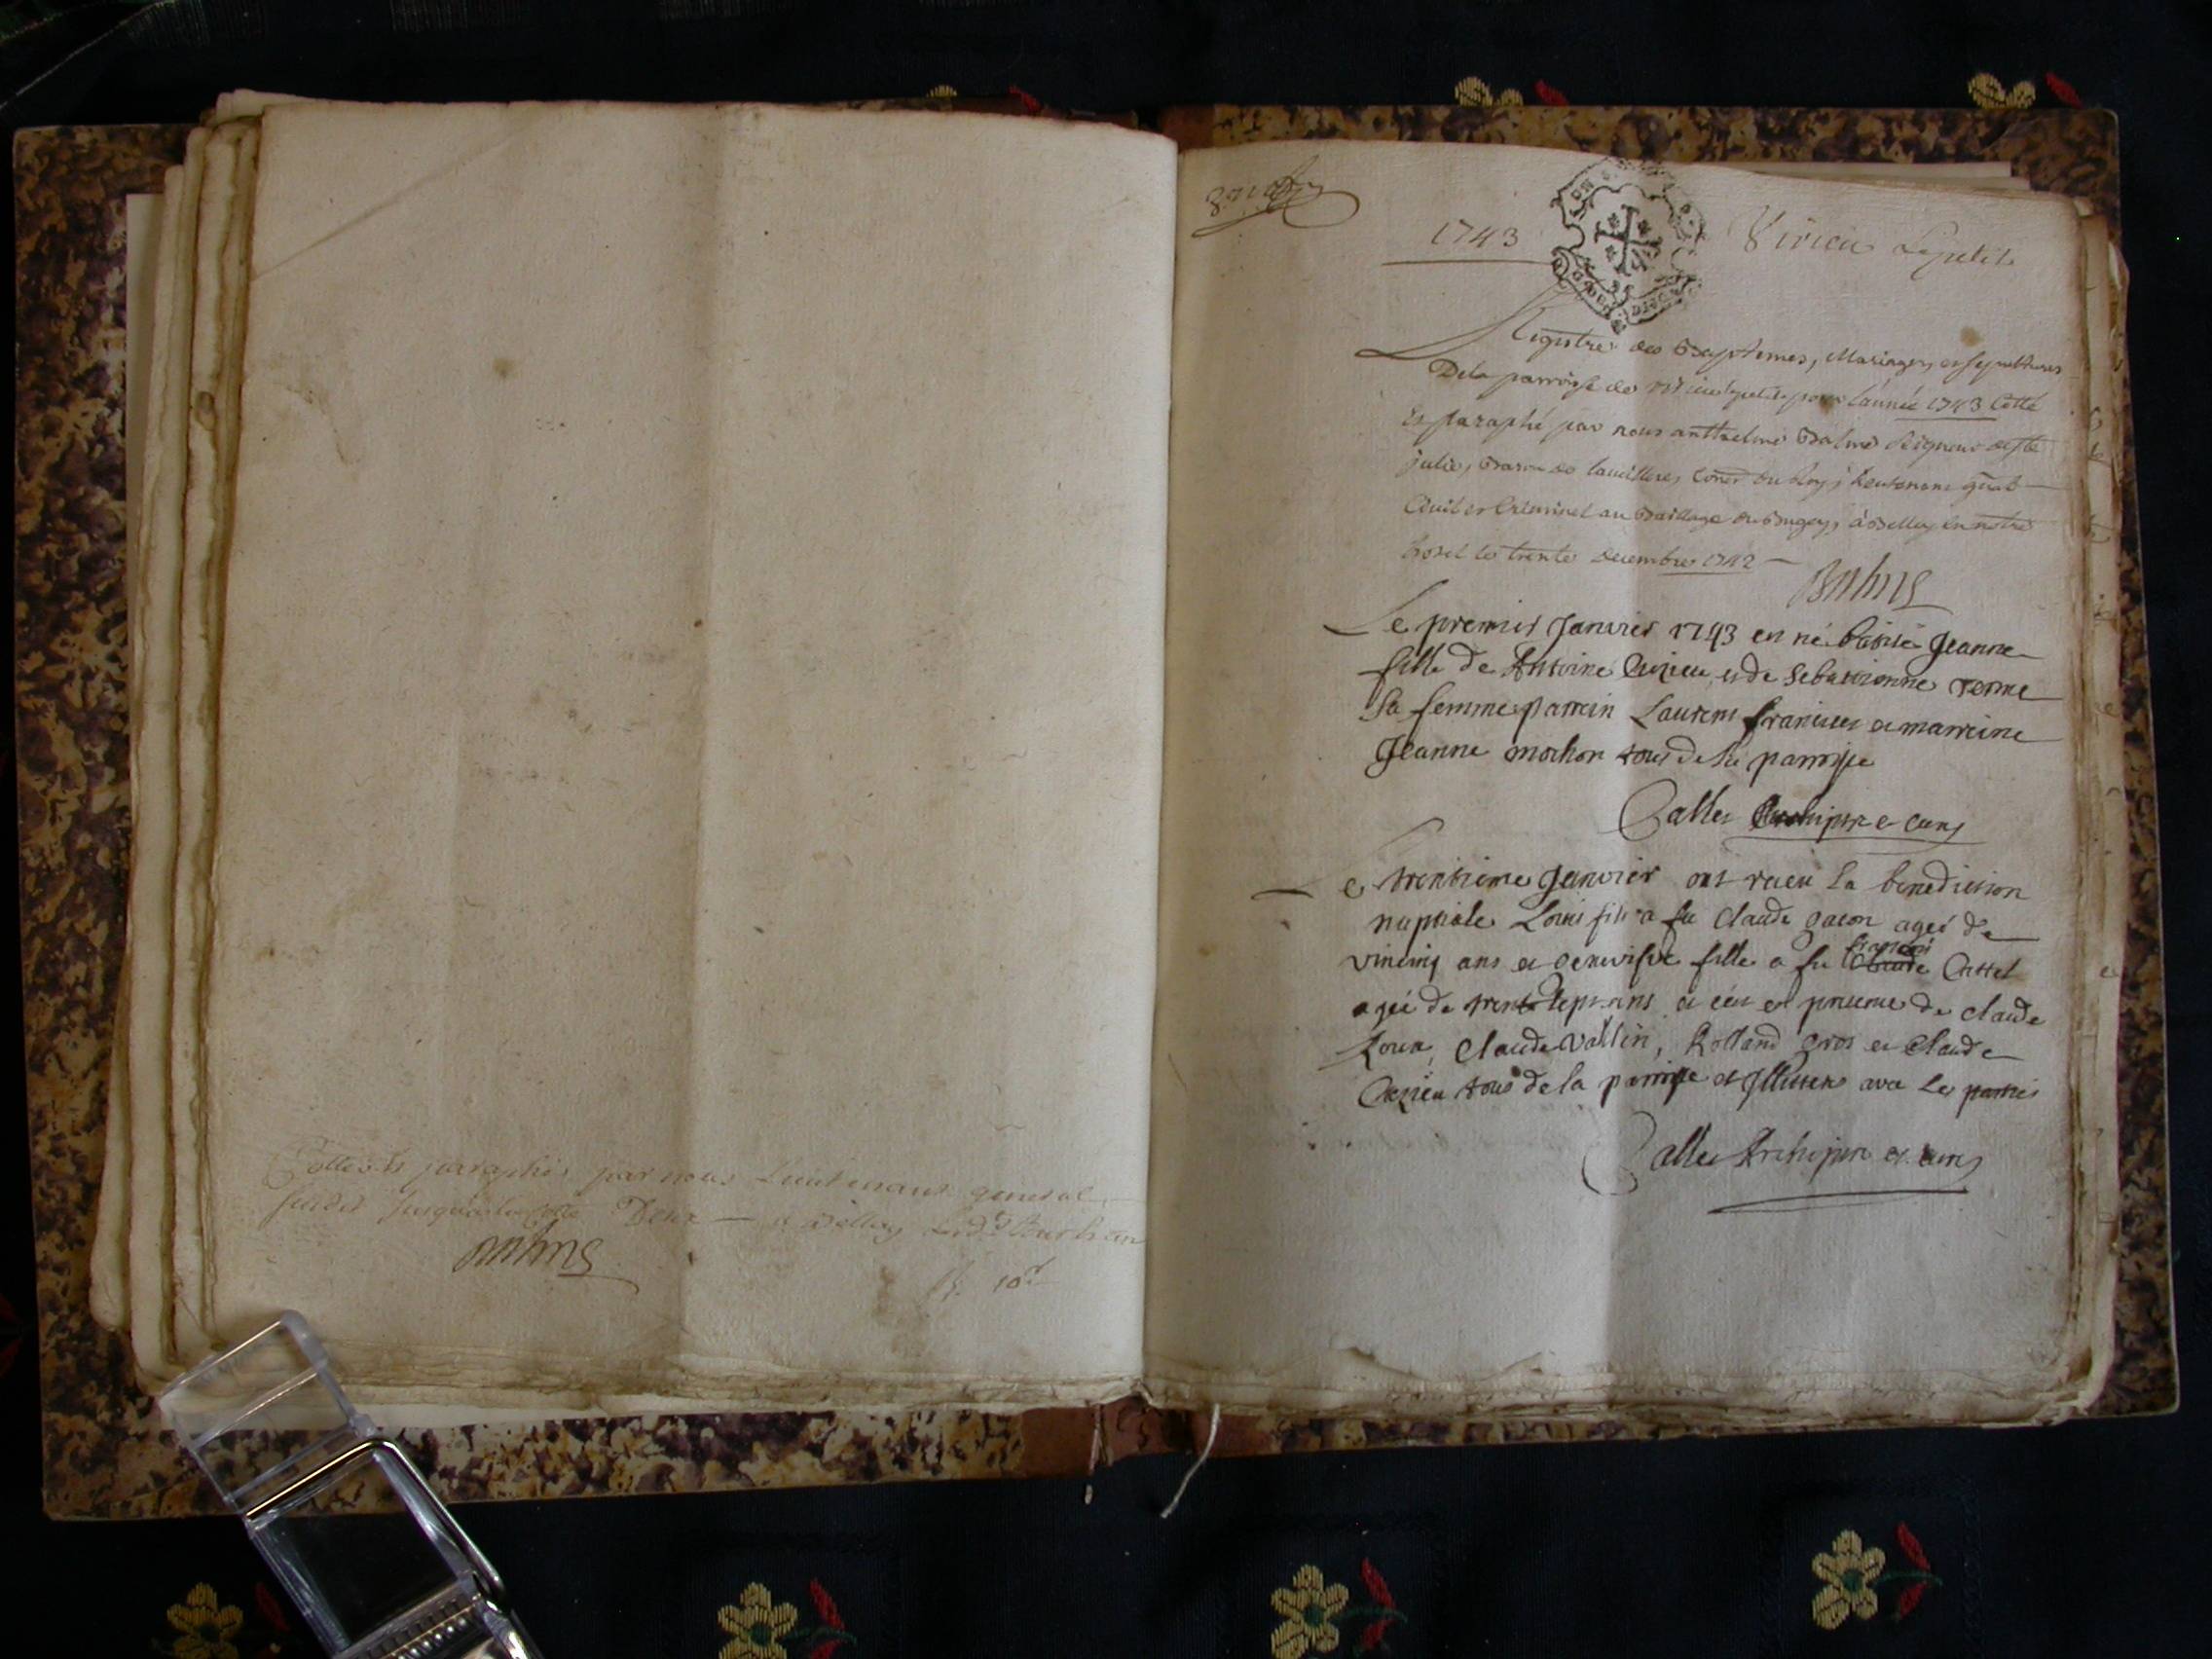 Cottés et paraphés par nous Lieutenant general
jusqu'à la Cotte Deux — a Belley
Balme
10d
1743
Virieu Le petit
Registre des Baptemes, Mariages, et sepultures
De la parroisse de Virieu le petit pour l'année 1743 Cotté
Et paraphé par nous anthelme Balme Seigneur de Ste
julie, Baron de Consr du Roy, Lieutenant gñal
Civil et Criminel au Baillage du Bugey, à Belley en notre
hotel le trente decembre 1742
Balme
Le premier Janvier 1743 est né batisé Jeanne
fille de Antoine Cuzieu et de Sebastienne
sa femme parrein Laurent et marreine
Jeanne mochon tous de la parroisse
Archiptre et curé
Le trentieme Janvier ont receu la benediction
nuptiale Louis fils a fu Claude gacon ageé de
vincinq ans et genevisve fille a fu Claude francois
ageé de trente sept ans et c'est en presence de claude
Roux, Claude Vallin, Rolland gros et Claude
Cuzieu tous de la parroisse et Illiteres avec les parties
Archiptre et curé